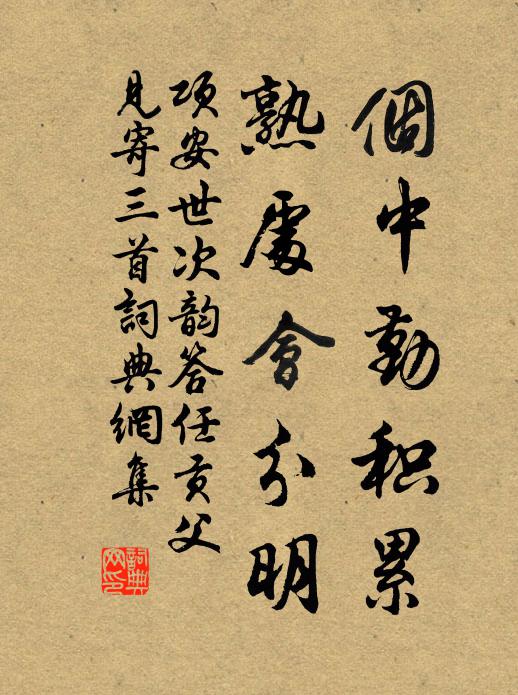 個中勤积累
熟處會分明
项安世次韵答任贡父
見寄三首詞典網集
詞典
网印